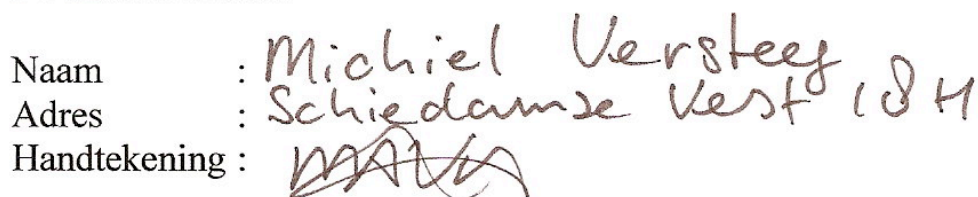 Naam : Michiel Versteeg
Adres : Schiedamse Vest 18H
Handtekening :